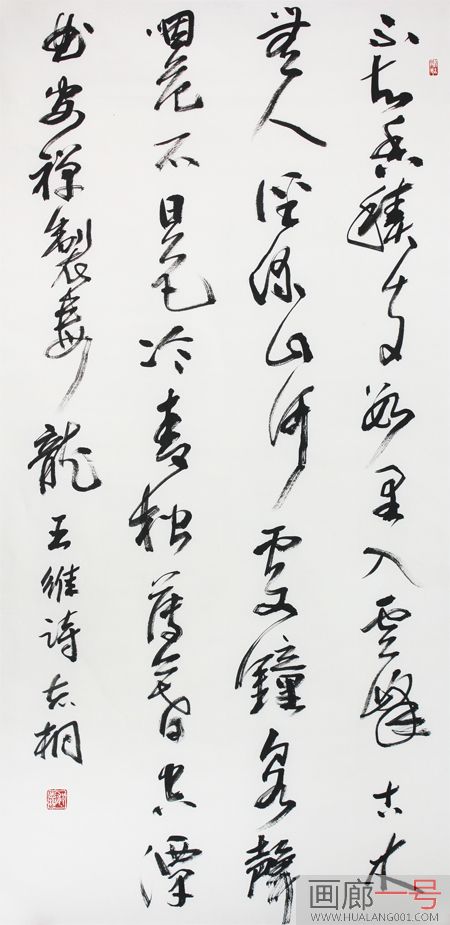 不知香積寺數里入雲峰古木
無人徑深山何處鐘泉聲
咽危石日色冷青松薄暮空潭
曲安禪製毒龍王維詩志桐
画廊一号
WWW.HUALANG001.COM